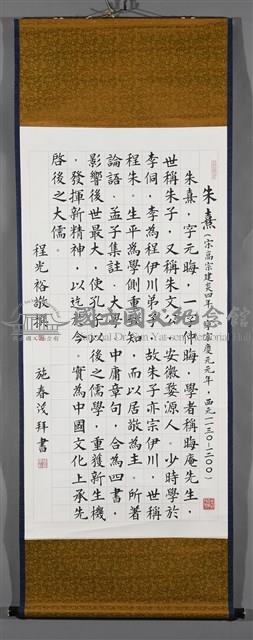 朱熹(宋高宗建炎四年-寧宗慶元元年，西元一一三〇-一二〇〇)
朱熹，字元晦，一字仲晦，學者稱晦庵先生，
世稱朱子，又稱朱文公，安徽婺源人。少時學於
李侗，李為程伊川弟子，故朱子亦宗伊川，世稱
程朱。生平為學側重　知，而以居敬為主。所著
論語、孟子集註，大學、中庸章句，合為四書，
影響後世最大，使孔孟以後之儒學，重獲新生機
，發揮新精神，以迄於今。實為中國文化上承先
啓後之大儒。
程光裕敬撰
施春茂拜書
國立國父紀念館
National Dr. Sun Yat-sen Memorial Hall